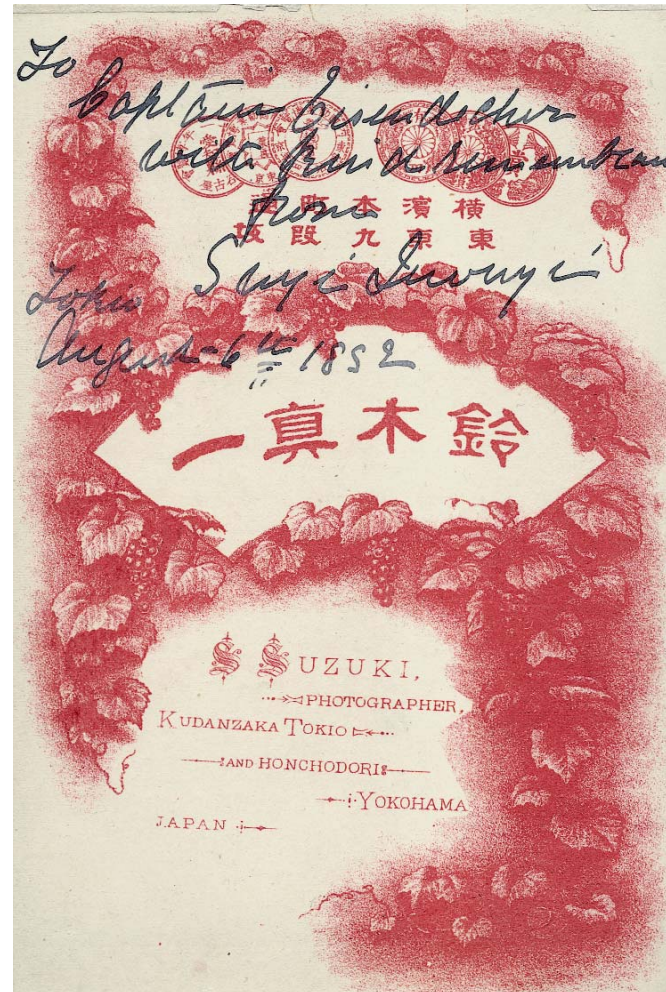 To
Captain Eisendecher
with kind remembran
from
横濱本町通
東京九段坂
Tokio
August 6th 1892
鈴木真一
S SUZUKI,
PHOTOGRAPHER,
KUDANZAKA TOKIO
AND HONCHODORI
YOKOHAMA
JAPAN